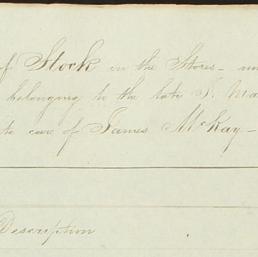 of Stock in the Stores -
belonging to the late
care of James McKay -
Description